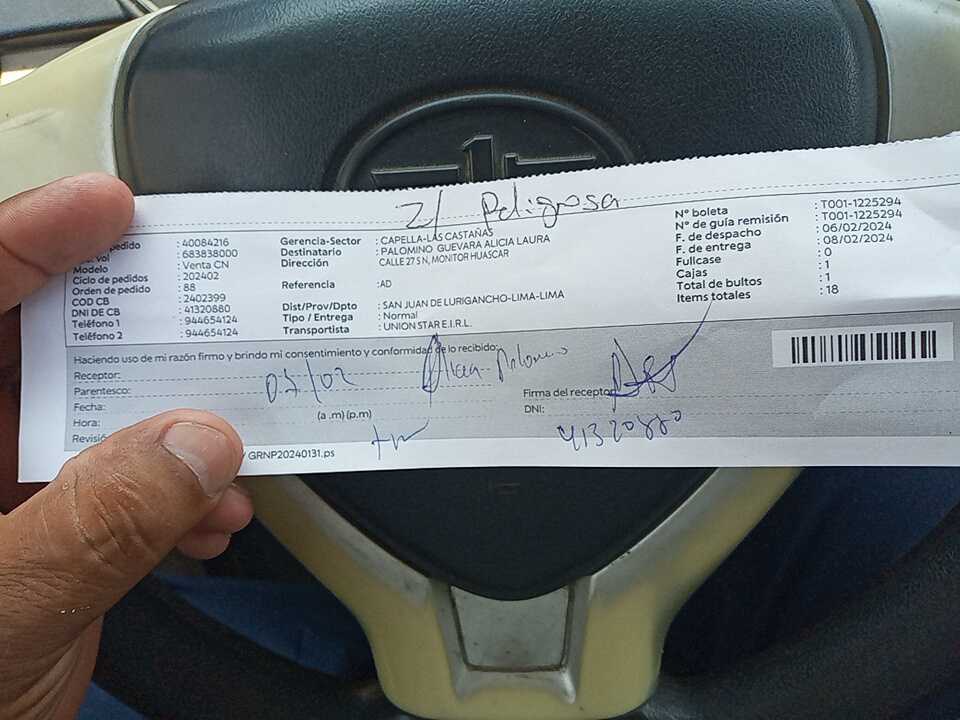 Z/ Peligrosa
pedido : 40084216
vol : 683838000
Modelo : Venta CN
Ciclo de pedidos : 202402
Orden de pedido : 88
COD CB : 2402399
DNI DE CB : 41320880
Teléfono 1 : 944654124
Teléfono 2 : 944654124
Gerencia-Sector : CAPELLA-LAS CASTAÑAS
Destinatario : PALOMINO GUEVARA ALICIA LAURA
Dirección CALLE 27 S N, MONITOR HUASCAR
Referencia :AD
Dist/Prov/Dpto : SAN JUAN DE LURIGANCHO-LIMA-LIMA
Tipo / Entrega : Normal
Transportista : UNION STAR E.I.R.L.
N° boleta : T001-1225294
N° de guía remisión : T001-1225294
F. de despacho : 06/02/2024
F. de entrega : 08/02/2024
Fullcase : 0
Cajas : 1
Total de bultos : 1
Items totales : 18
Haciendo uso de mi razón firmo y brindo mi consentimiento y conformidad de lo recibido:
Receptor: Alicia Palomino
Parentesco:
Fecha:
Hora: (a .m) (p.m)
Revisió
Firma del receptor
DNI: 41320880
/ GRNP20240131.ps